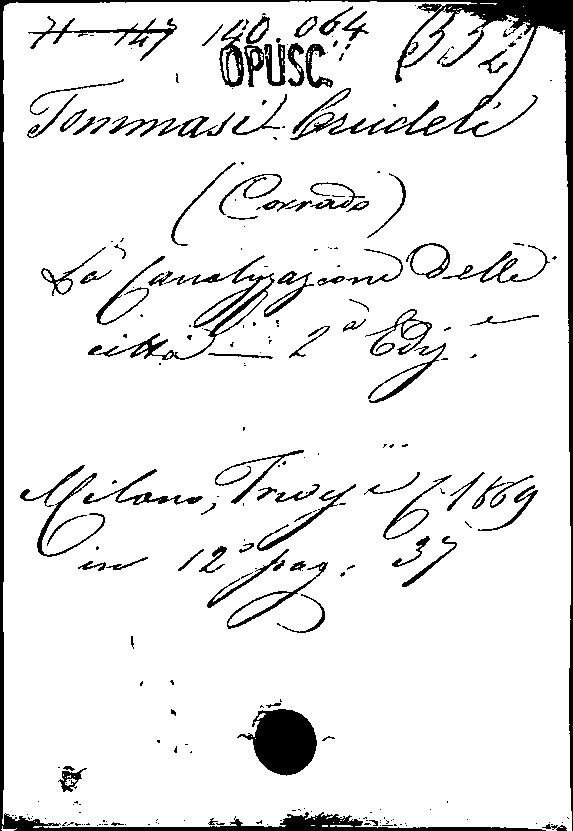 71 - 147 140 064 (332)
OPUSC.
Tommasi-Crudeli
(Corrado)
La Canalizzazione delle
città — 2ª Ediz.e
Milano, 1869
in 12º pag. 37